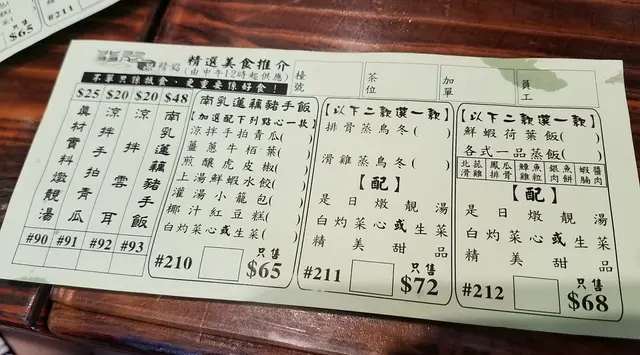 $65
#211
精選美食推介
(由中午12時起供應)
不單只係抵食、更重要係好食!
檯號
茶位
加單
員工
$25 $20 $20 $48
真材實料燉靚湯
涼拌手拍青瓜
涼拌雲耳
南乳蓮藕豬手飯
#90 #91 #92 #93
南乳蓮藕豬手飯
【加選配下列點心一款】
涼拌手拍青瓜( )
薑蔥牛栢葉( )
煎釀虎皮椒( )
上湯鮮蝦水餃( )
灌湯小籠包( )
椰汁紅豆糕( )
白灼菜心或生菜( )
#210
只售
$65
【以下二款選一款】
排骨蒸烏冬( )
滑雞蒸烏冬( )
【配】
是日燉靚湯
白灼菜心或生菜
精美甜品
#211
只售
$72
【以下二款選一款】
鮮蝦荷葉飯( )
各式一品蒸飯( )
北菇滑雞
鳳爪排骨
鯪魚肉餅
蝦醬腩肉
【配】
是日燉靚湯
白灼菜心或生菜
精美甜品
#212
只售
$68